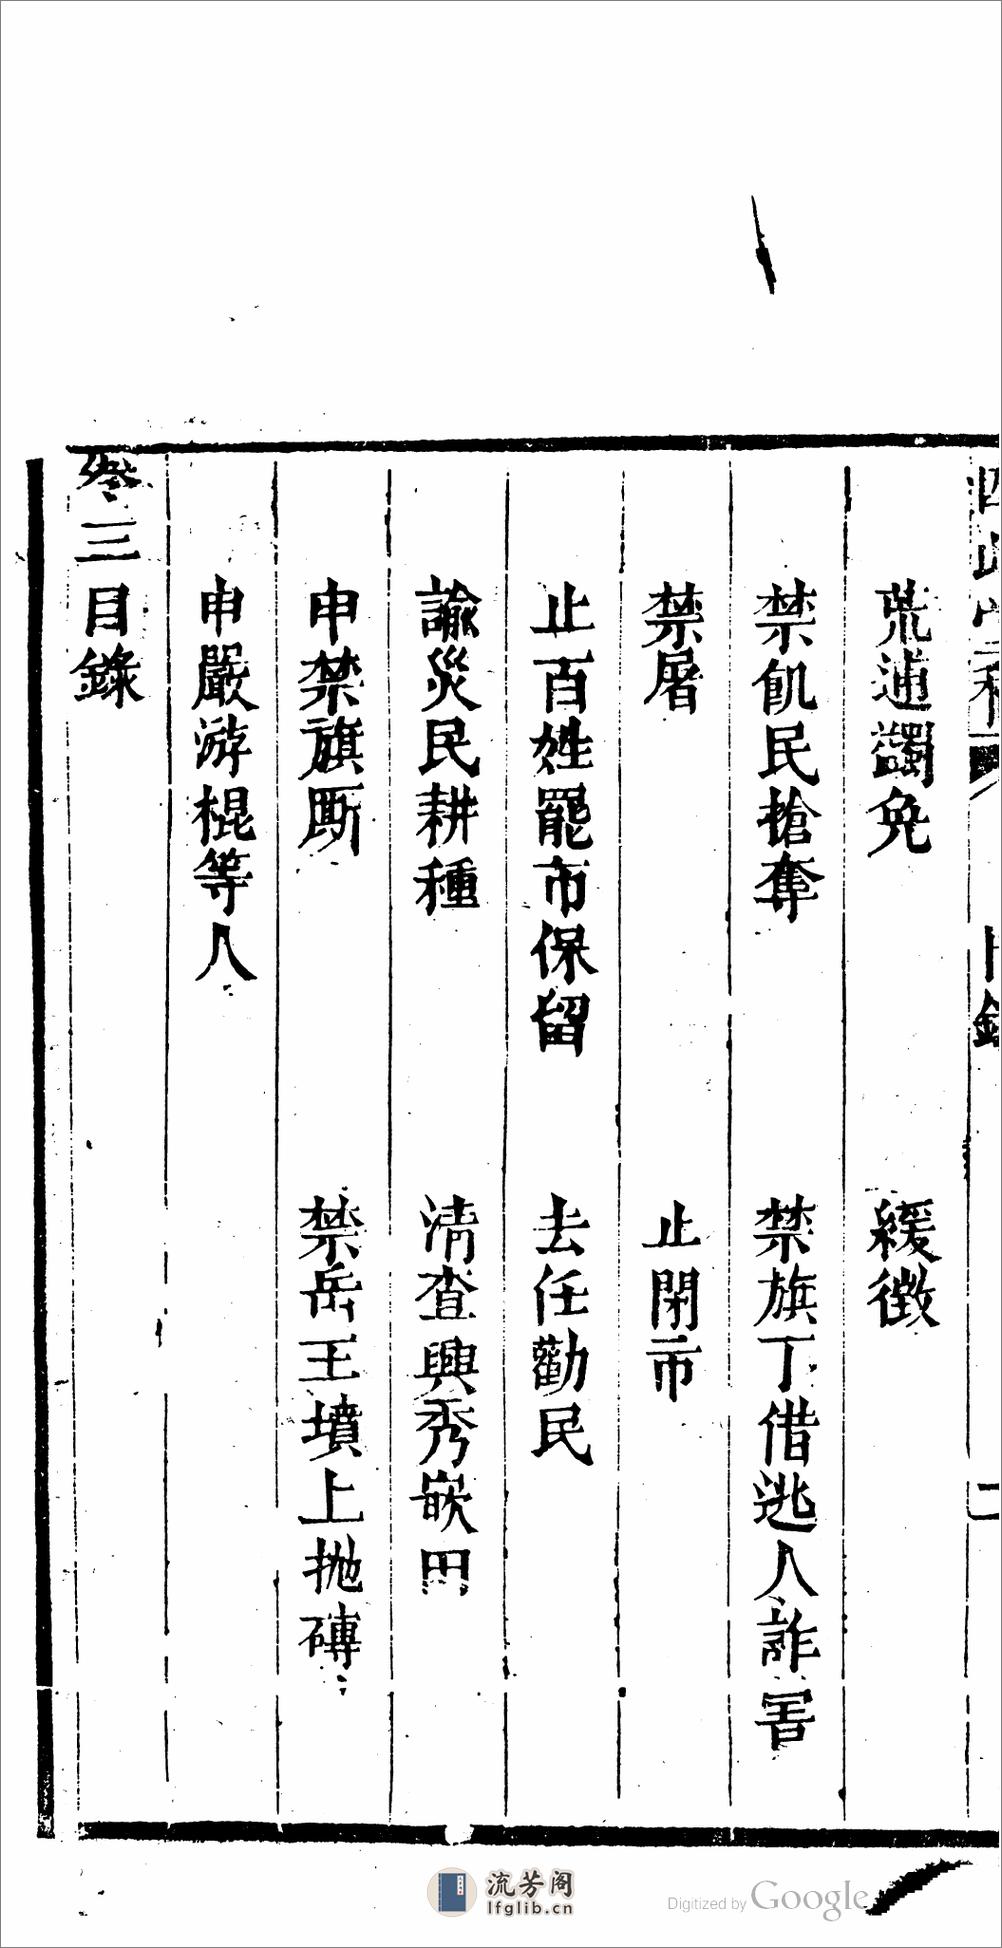 目錄
二
荒逋蠲免 緩徵
禁飢民搶奪 禁旗丁借逃人詐害
禁屠 止閉市
止百姓罷市保留 去任勸民
諭災民耕種 清查興秀嵌田
申禁旗厮 禁岳王墳上抛磚
申嚴游棍等人
卷三目錄
流芳阁
lfglib.cn
Digitized by Google